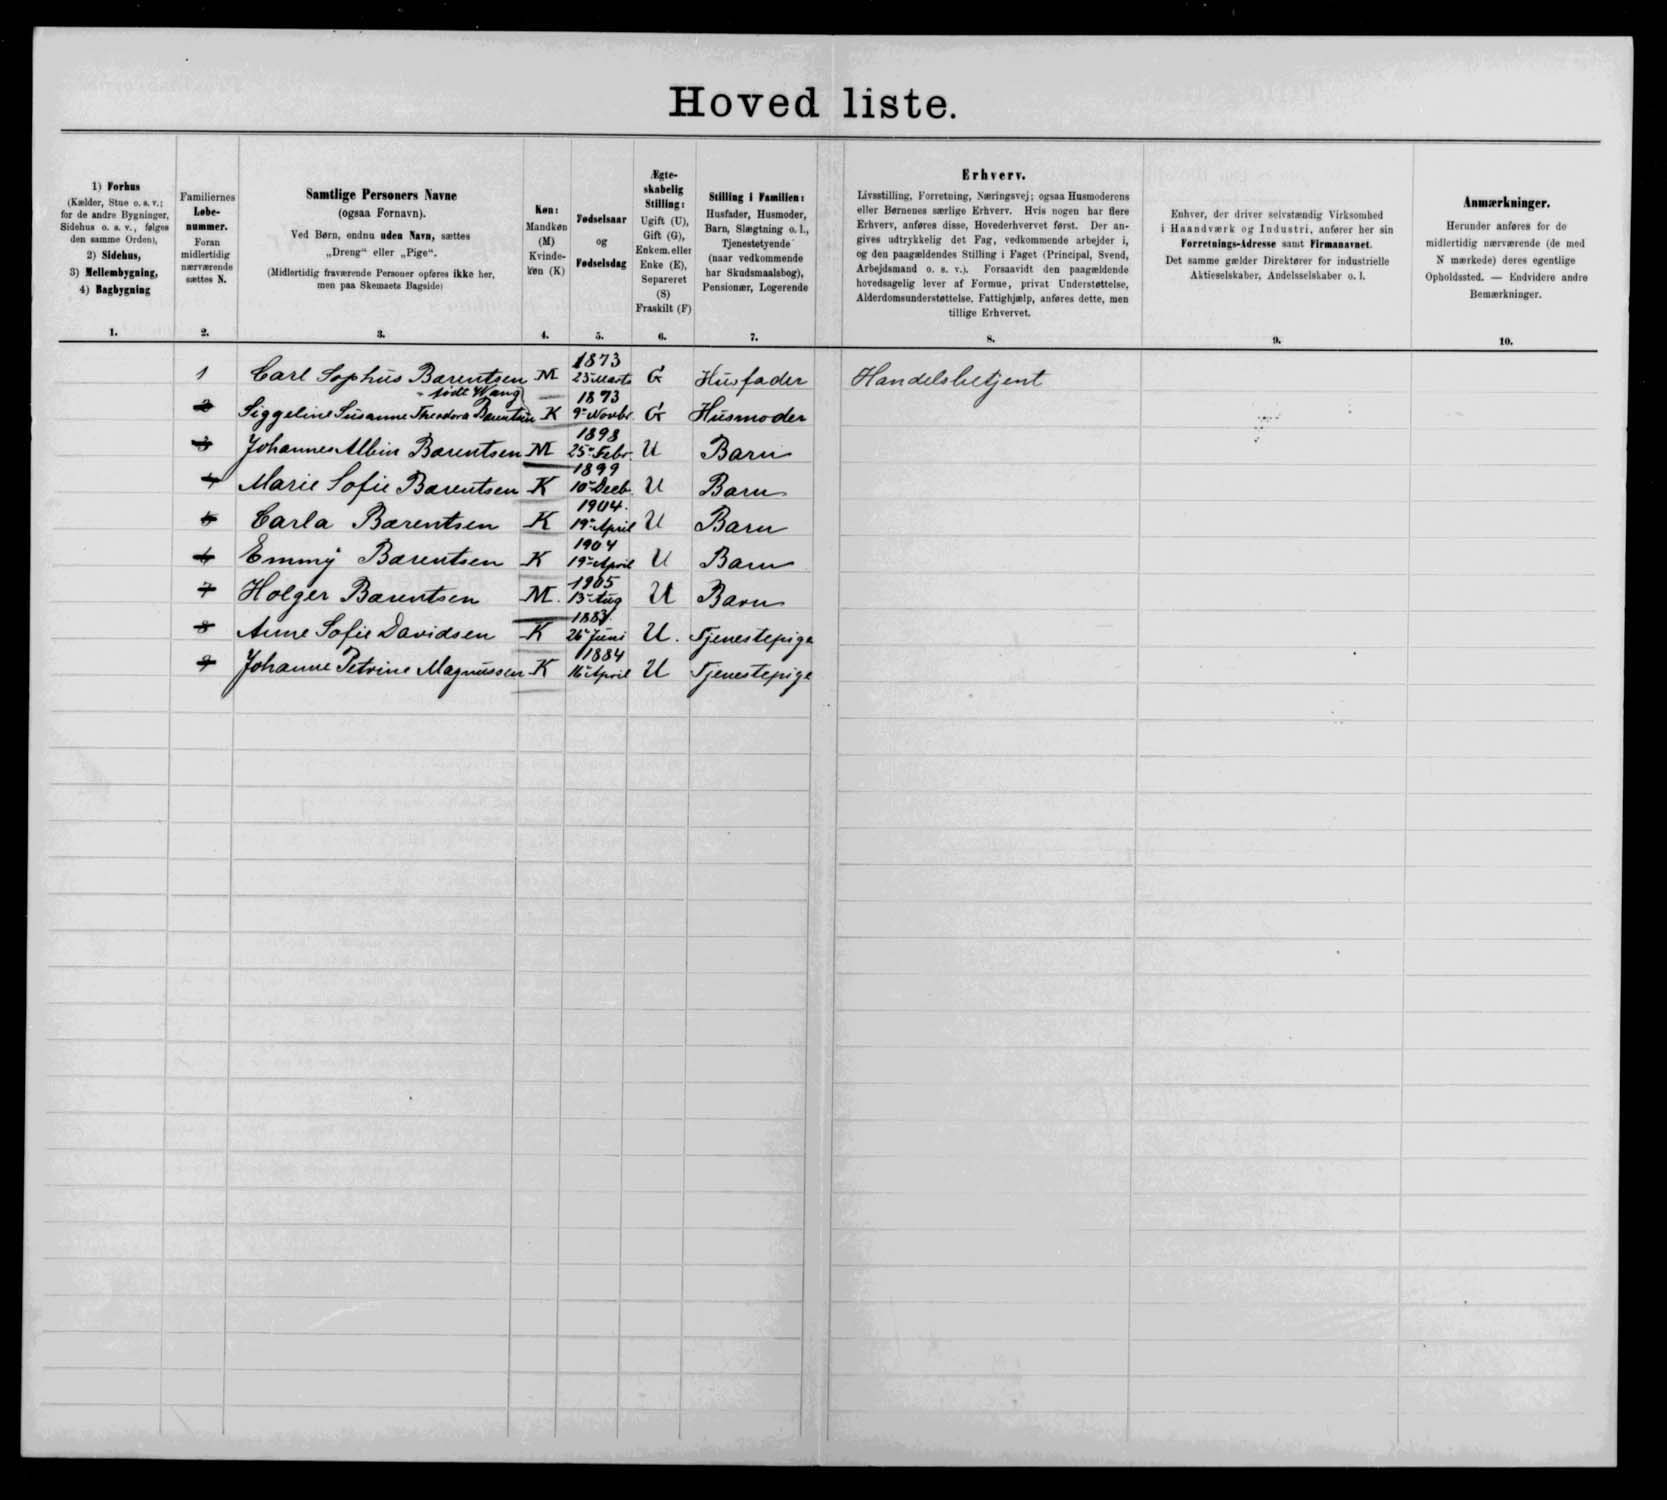 Hoved liste.
1) Forhus
(Kælder, Stue o. s. v.;
for de andre Bygninger,
Sidehus o. s. v., følges
den samme Orden),
2) Sidehus,
3) Mellembygning,
4) Bagbygning
1.
Familiernes
Løbe-
nummer.
Foran
midlertidig
nærværende
sættes N.
2.
Samtlige Personers Navne
(ogsaa Fornavn).
Ved Børn, endnu uden Navn, sættes
„Dreng“ eller „Pige“.
(Midlertidig fraværende Personer opføres ikke her,
men paa Skemaets Bagside)
3.
Køn:
Mandkøn
(M)
Kvinde-
køn (K)
4.
Fødselsaar
og
Fødselsdag
5.
Ægte-
skabelig
Stilling:
Ugift (U),
Gift (G),
Enkem. eller
Enke (E),
Separeret
(S)
Fraskilt (F)
6.
Stilling i Familien:
Husfader, Husmoder,
Barn, Slægtning o. l.,
Tjenestetyende
(naar vedkommende
har Skudsmaalsbog),
Pensionær, Logerende
7.
Erhverv.
Livsstilling, Forretning, Næringsvej; ogsaa Husmoderens
eller Børnenes særlige Erhverv. Hvis nogen har flere
Erhverv, anføres disse, Hovederhvervet først. Der an-
gives udtrykkelig det Fag, vedkommende arbejder i,
og den paagældendes Stilling i Faget (Principal, Svend,
Arbejdsmand o. s. v.). Forsaavidt den paagældende
hovedsagelig lever af Formue, privat Understøttelse,
Alderdomsunderstøttelse, Fattighjælp, anføres dette, men
tillige Erhvervet.
8.
Enhver, der driver selvstændig Virksomhed
i Haandværk og Industri, anfører her sin
Forretnings-Adresse samt Firmanavnet.
Det samme gælder Direktører for industrielle
Aktieselskaber, Andelsselskaber o. l.
9.
Anmærkninger.
Herunder anføres for de
midlertidig nærværende (de med
N mærkede) deres egentlige
Opholdssted. — Endvidere andre
Bemærkninger.
10.
1 Carl Sophus Barentsen M 1873 23 Marts G Husfader Handelsbetjent
født Wang
2 Siggeline Susanne Theodora Barentsen K 1873 9 Novbr. G Husmoder
3 Johannes Albin Barentsen M 1898 25 Febr. U Barn
4 Marie Sofie Barentsen K 1899 10 Decb. U Barn
5 Carla Barentsen K 1904. 19 April U Barn
6 Emmy Barentsen K 1904 19 April U Barn
7 Holger Barentsen M. 1905 13 Aug U Barn
8 Anne Sofie Davidsen K 1883. 26 Juni U. Tjenestepige
9 Johanne Petrine Magnussen K 1884 16 April U Tjenestepige